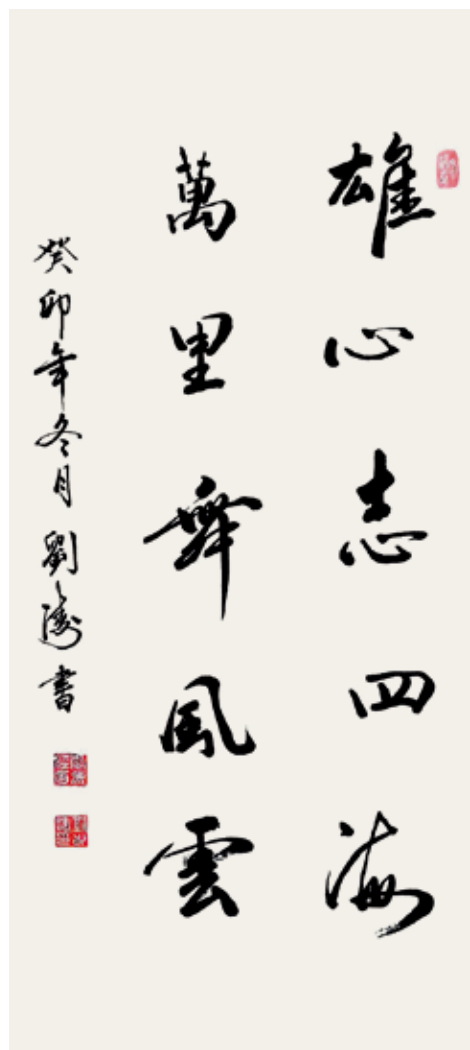 雄心志四海
萬里舞風雲
癸卯年冬月劉濤書